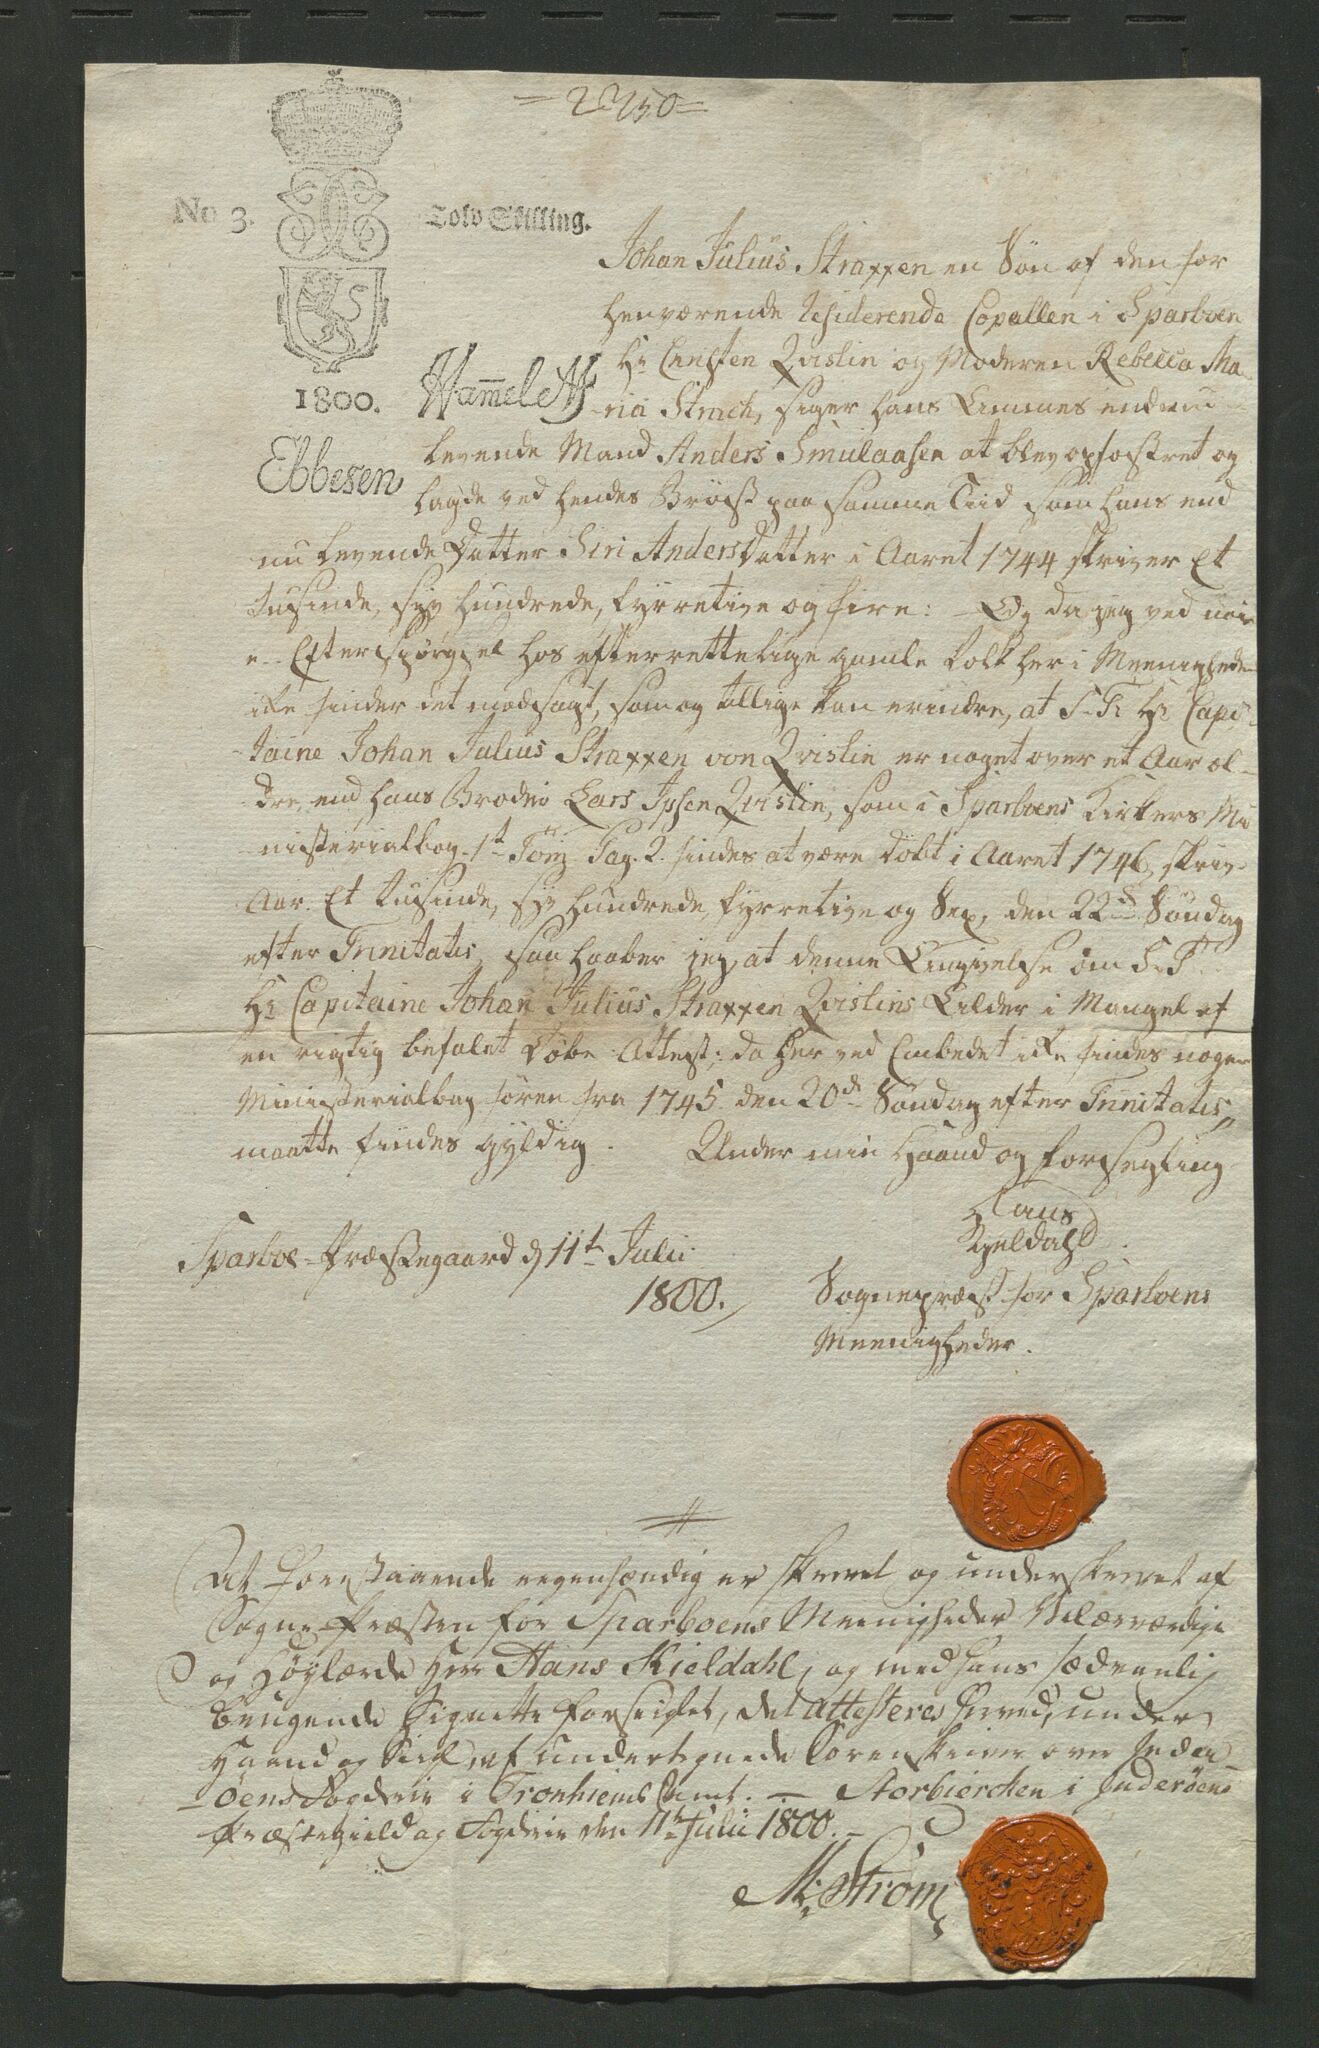 = 2250 =
No 3. Tolv Skilling.
1800.
Hammeleff
Ebbesen
Johan Julius Straxxen en Søn af den for
henværende residerende Capellan i Sparboen
Hr Christen Qvislin og Moderen Rebecca Ma-
-ria Strich, siger hans Ammes endnu
levende Mand Anders Smulaasen at blev opfostret og
lagde ved hendes Bryst paa samme Tiid som hans end
nu levende Datter Siri Anders Datter i Aaret 1744 skriver Et
tusinde, syv hundrede, fyrretive og fire: Og da jeg ved nøie
Efterspørgsel hos efterrettelige gamle Folk her i Meenigheden
ikke finder det modsagt, som og tillige kan erindre, at S. T. Hr Capi-
-taine Johan Julius Straxxen von Qvislin er noget over et Aar æl-
-dre, end hans Broder Lars Ipsen Qvislin, som i Sparboens Kirkers Mi
nisterialbog 1t Tom Pag. 2. findes at være døbt i Aaret 1746, skriv
Aar Et tusinde, syv hundrede, fyrretive og Sex, den 22d Søndag
efter Trinitatis, saa haaber jeg, at denne Angivelse om S. T.
Hr Capitaine Johan Julius Straxxen Qvislins Alder i Mangel af
en rigtig befalet Døbe-Attest; da her ved Embedet ikke findes nogen
Ministerialbog føren fra 1745 den 20de Søndag efter Trinitatis,
maatte findes gyldig. Under min Haand og Forsegling
Sparboe-Præstegaard d 11t Julii
1800.
Hans
Kjeldahl
Sognepræst for Sparboens
Meenigheder.
At Forestaaende egenhændig er skrevet og underskrevet af
Sogne-Præsten for Sparboens Meenigheder Velærværdige
og Høylærde Herr Hans Kieldahl, og med hans sædvanlig
brugende Signette forseiglet, det attesteres herved, under
Haand og Seigl, af undertegnede Sorenskriver over Inder-
-øens Fogderie i Tronhiems Amt. — Storbierchen i Inderøens
Præstegield og Fogderie den 11te Julii 1800.
M. Strøm